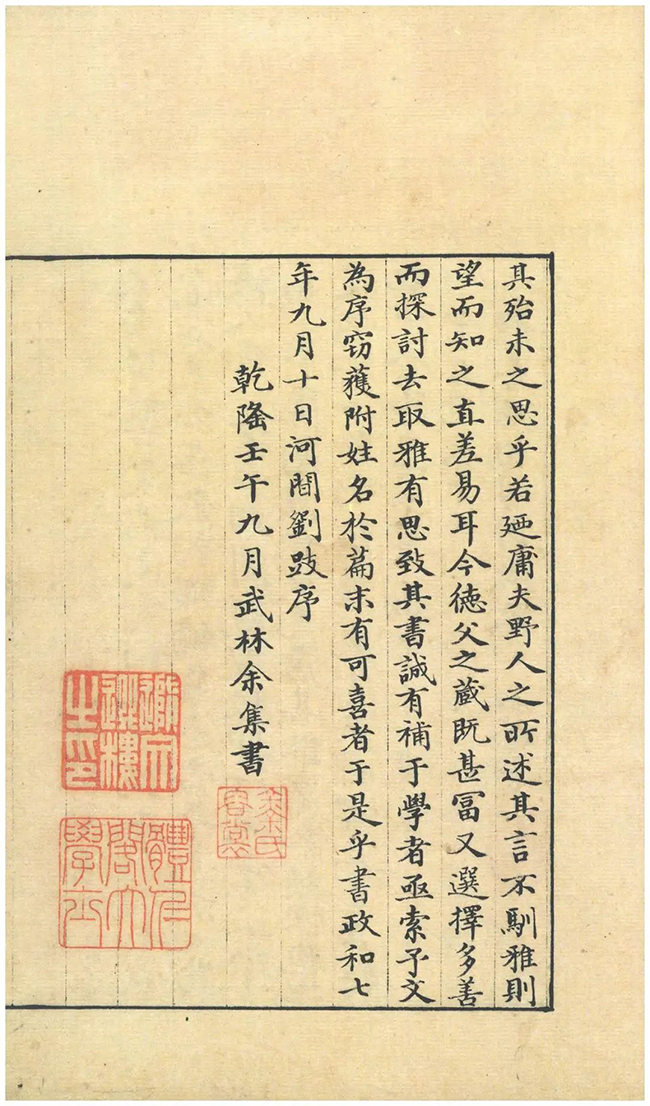 其殆未之思乎若廼庸夫野人之所述其言不馴雅則
望而知之直差易耳今徳父之藏既甚冨又選擇多善
而探討去取雅有思致其書誠有補于學者亟索予文
為序窃獲附姓名於篇末有可喜者于是乎書政和七
年九月十日河間劉跂序
乾隆壬午九月武林余集書
隋文選樓之印
體仁閣大學士